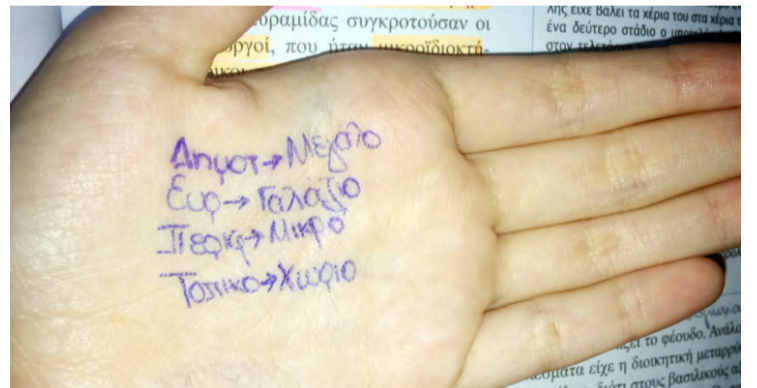 υραμίδας συγκροτούσαν οι
ωργοί, που ήταν μικροϊδιοκτή-
λης είχε βάλει τα χέρια του στα χέρια τ
ένα δεύτερο στάδιο ο
στον
Δημοτ→Μεγάλο
Ευρ→Γαλάζιο
Περιφ→Μικρό
Τοπικο→Χωριο
ζει το φέουδο. Ανάλο
σματα είχε η διοικητική μεταρρύ
διότι στους βασιλικούς αξ